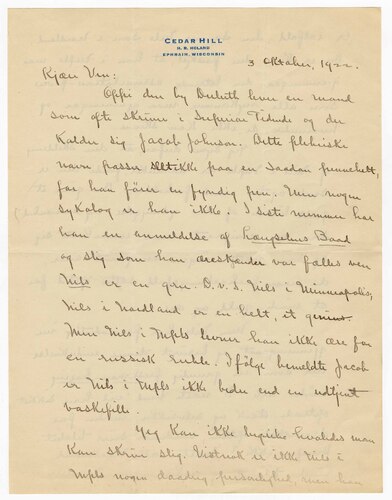 CEDAR HILL
H. R. HOLAND
EPHRAIM, WISCONSIN
3 Oktober, 1922.
Kjære Ven:
Oppi den by Duluth lever en mand
som ofte skriver i Superior Tidende og der
kalder sig Jacob Johnson. Dette
navn passer slet ikke paa en saadan pennehelt,
for han fører en fyndig pen. Men nogen
sykolog er han ikke. I siste nummer har
han en anmeldelse af Længselens Baad
og slig som han æreskjænder vor fælles ven
Nils er en gru. D.v.s. Nils i Minneapolis,
Nils i Nordland er en helt, et genius.
Men Nils i Mpls levner han ikke ære for
en russisk ruble. Ifølge bemeldte Jacob
er Nils i Mpls ikke bedre end en udtjent
vaskefille.
Jeg kan ikke begribe hvorledes man
kan skrive slig. Vistnok er ikke Nils i
Mpls nogen daadrig personlighed, men han